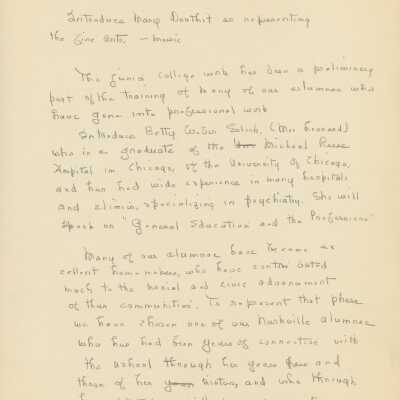 Introduce Mary Douthit as representing
the fine arts. - music
The junior college work has been a preliminary
part of the training of many of our alumnae who
have gone into professional work
Introduce Betty (Mrs.
who is a graduate of the Michael Reese
Hospital in Chicago, of the University of Chicago,
and has had wide experience in many hospitals
and clinics, specializing in psychiatry. She will
speak on "General Education and the Professions"
Many of our alumnae have become ex
cellent home-makers, who have contributed
much to the social and civic advancement
of their communities. To represent that phase
we have chosen one of our Nashville alumnae
who has had seen years of connection with
the school through her years and
those of her sisters, and who through